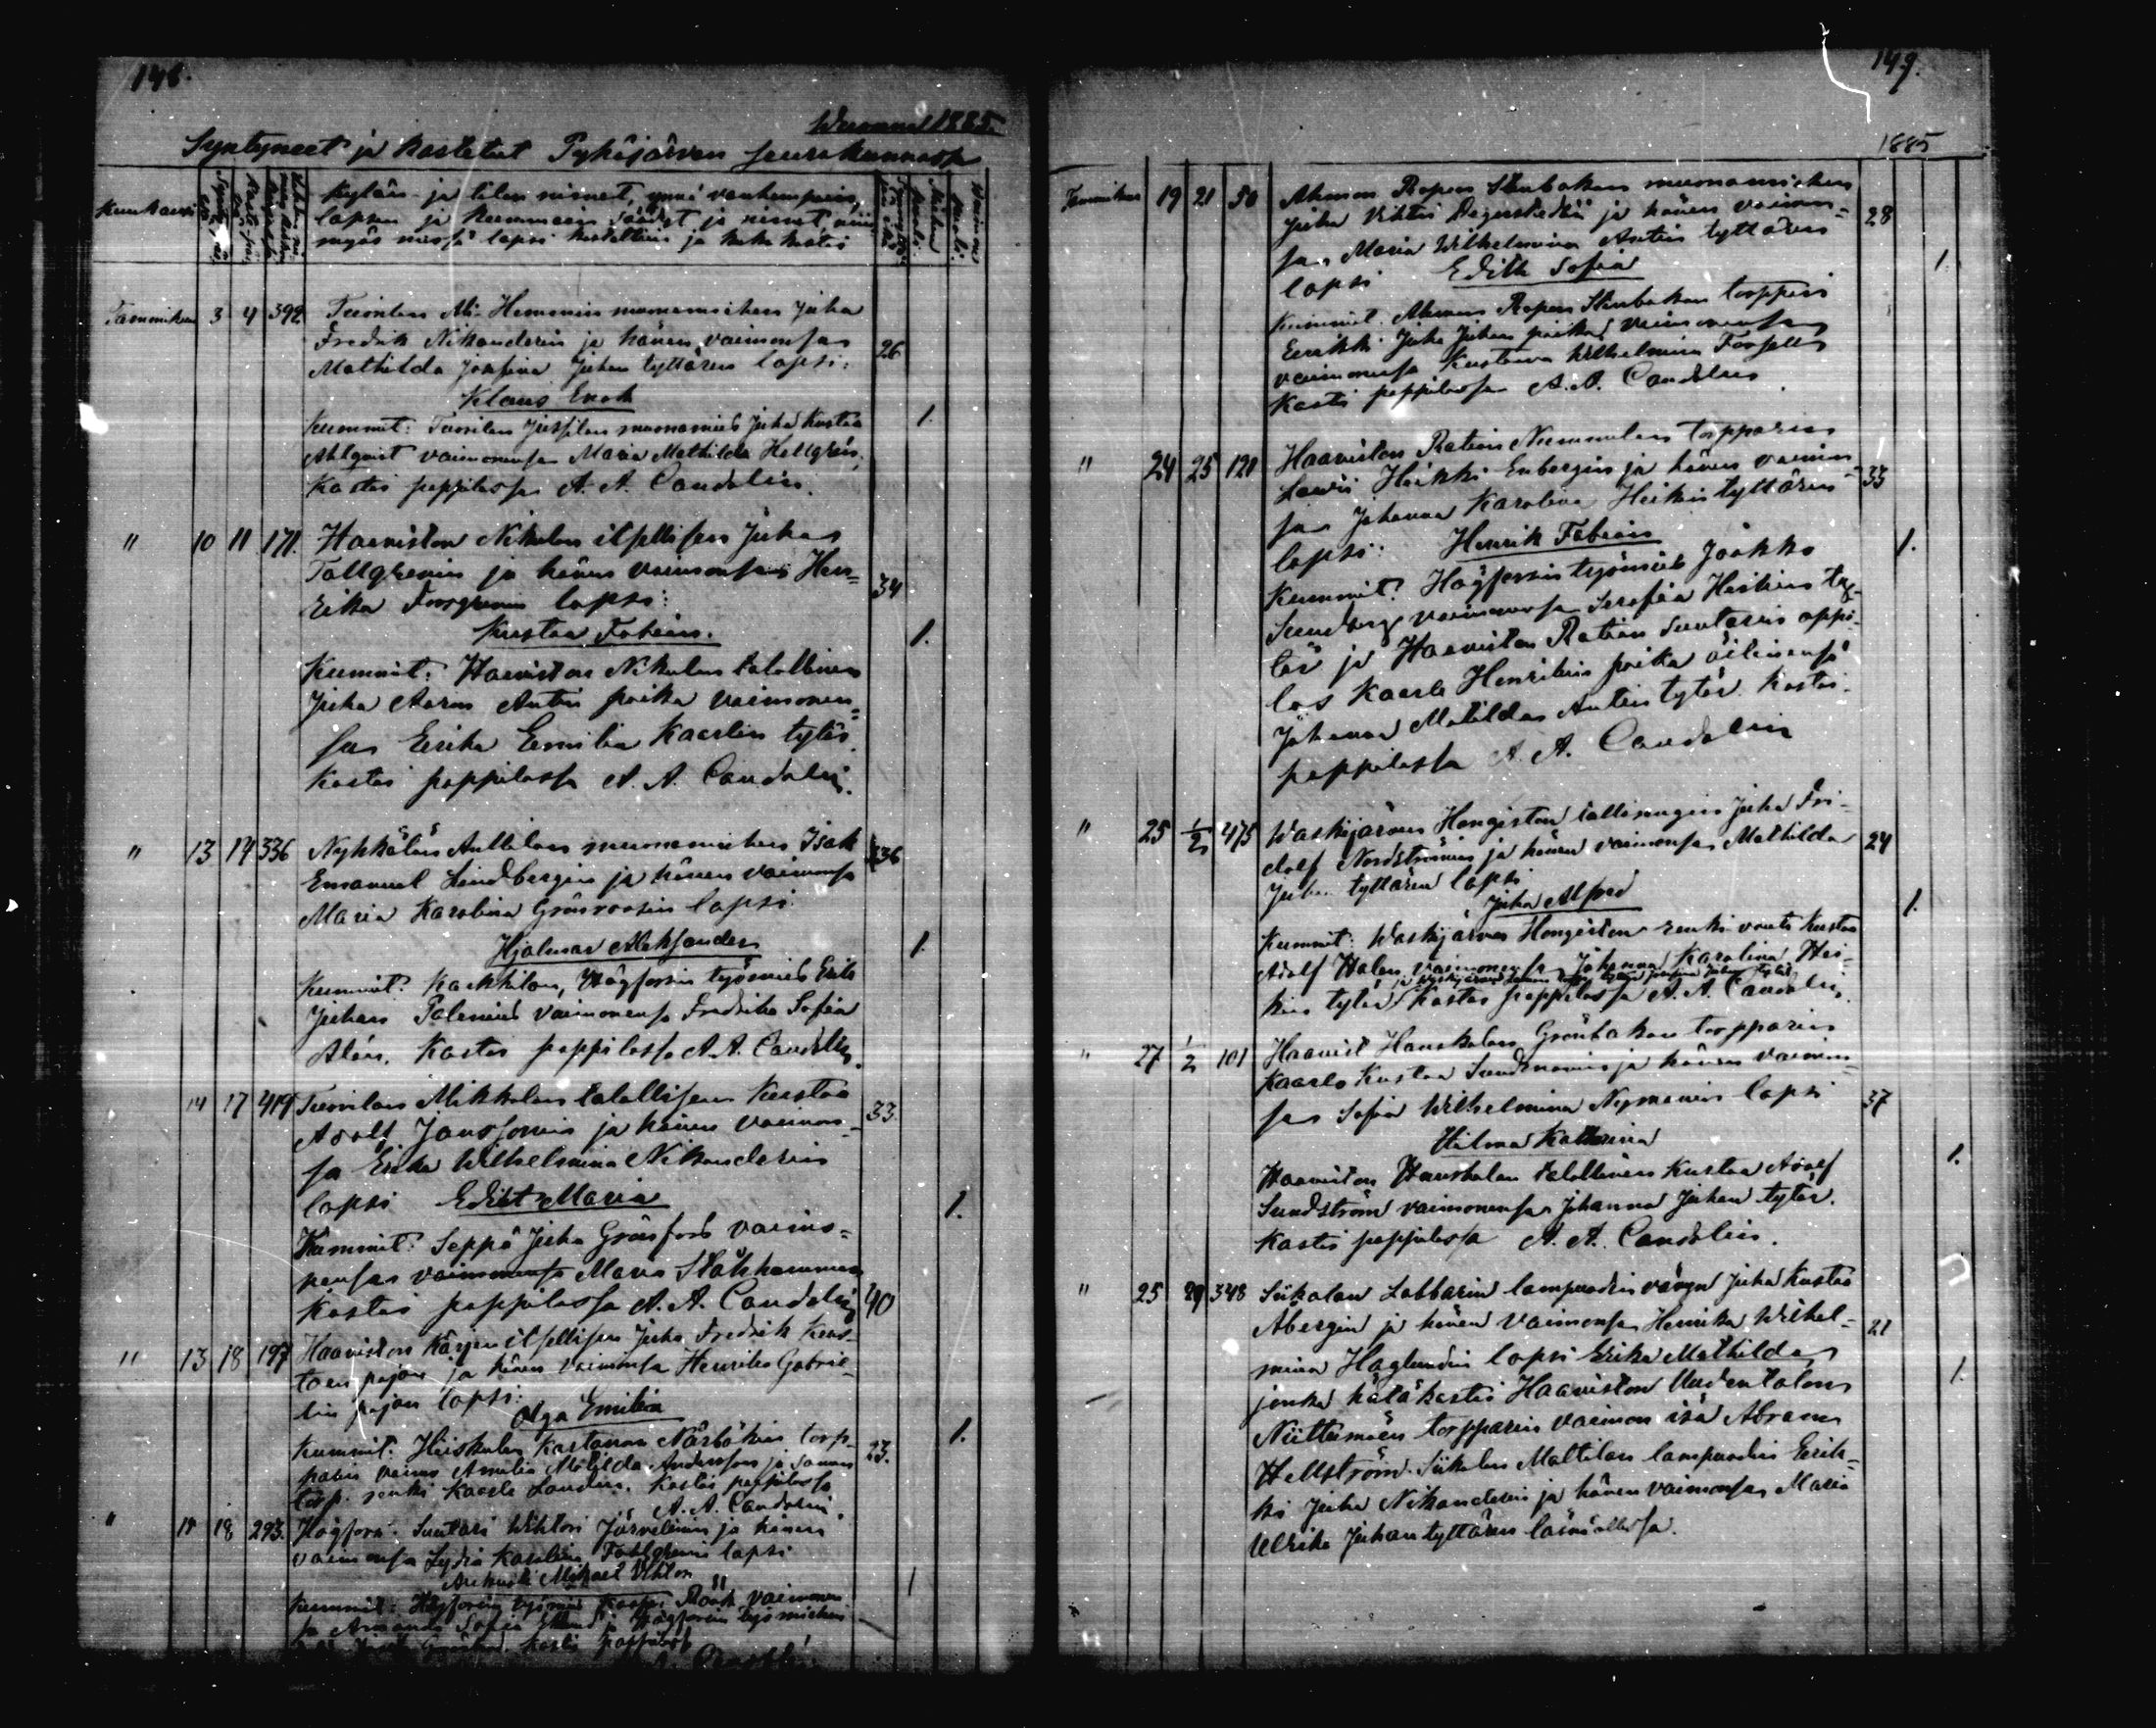 148.
Wuonna 1885.
Syntyneet ja kastetut Pyhäjärven seurakunnassa
Kuukausi
Kylän- ja tilan nimet, ynnä vanhempain,
lapsen ja kummein säädyt ja nimet, niin
myös missä lapsi kastettiin ja kuka kastoi
Tammikuu 3 4 392 Tuorilan Ali-Hemmin muonamiehen Juha
Fredrik Nikanderin ja hänen vaimonsa 26
Mathilda Josefina Juhan tyttären lapsi:
Klaus Enok
Kummit: Tuorilan Jussilan muonamies Juha Kustaa 1.
Ahlqvist vaimonensa Maria Mathilda Hellgrén.
Kastoi pappilassa A. A. Candolin.
" 10 11 171. Haaviston Nikulan itsellisen Juha
Tallgrenin ja hänen vaimonsa Hen= 34
rika Forsgrenin lapsi:
Kustaa Fabian. 1.
Kummit: Haaviston Nikulan talollinen
Juha Aaron Antin poika vaimonen=
sa Eerika Emilia Kaarlen tytär.
Kastoi pappilassa A. A. Candolin.
" 13 14 336 Nyhkälän Anttilan muonamiehen Isak 36
Emanuel Lindbergin ja hänen vaimonsa
Maria Karolina Grönroosin lapsi
Hjalmar Aleksander 1.
Kummit: Högforsin työmies Erik
Juhan Palenius vaimonensa Fredrika Sofia
Alén. Kastoi pappilassa A. A. Candolin.
14 17 419 Tuorilan Mikkolan talollisen Kustaa 33.
Adolf Janssonin ja hänen vaimon=
sa Erika Wilhelmina Nikanderin
lapsi Edit Maria 1.
Kummit: Seppä Juha Grönfors vaimo=
nensa Maria Stålhammar
Kastoi pappilassa A. A. Candolin 40
" 13 18 197 Haaviston itsellisen Juha Fredrik Kus-
taan pojan ja hänen vaimonsa Henrika Gabrie-
lin pojan lapsi:
Olga Emilia 1.
Kummit: Hiiskulan Kartanon torp-
parin vaimo Amalia Matilda Andersson ja saman 23.
torp. renki Kaarle Kastoi pappilassa
A. A. Candolin.
" 18 293. Högfors. Suutari Wiktori Järvelinin ja hänen
vaimonsa Lydia Karolina Fahlgrenin lapsi
Mikael Viktor 1
Kummit: Högforsin työmies Röök vaimonen
sa Amanda Sofia ja Högforsin työmiehen
Kastoi pappilassa
149.
1885
Tammikuu 19 21 50 Ahmon Ropen Stenbakan muonamiehen
Juha Viktor ja hänen vaimon= 28
sa Maria Wilhelmina Antin tyttären
lapsi Edith Sofia 1.
Kummit. Ahmon Ropen Stenbakan torppari
Eerikki Juha Juhan poika vaimonensa
Kustaava Wilhelmina Forsell
Kastoi pappilassa A. A. Candolin.
" 24 25 121 Haaviston Ratian Nummelan torpparin
Heikki Enbergin ja hänen vaimon= 33
sa Johanna Karolina Heikin tyttären
lapsi: Henrik Fabian 1.
Kummit: Högforsin työmies Jaakko
Sundberg vaimonensa Serafia Heikin ty-
tär ja Haaviston Ratian suutarin oppi-
las Kaarle Henrikin poika äitinensä
Johanna Matilda Antin tytär. Kastoi
pappilassa A. A. Candolin
" 25 1/2 475 Waskijärven Hongiston tallirengin Juha Fri-
dolf Nordströmin ja hänen vaimonsa Mathilda 24
Juhan tyttären lapsi
Juha Alfred 1.
Kummit: Waskijärven Hongiston renki vouti Kustaa
Adolf Walen vaimonensa Johanna Karolina Hei-
kin tytär Kastoi pappilassa A. A. Candolin.
" 27 1/2 101 Haavist. Hauskalan Grönbakan torpparin
Kaarlo Kustaa Sundmanin ja hänen vaimon=
sa Sofia Wilhelmina Nymanin lapsi 37
Hilma Katarina 1.
Haaviston Hauskalan talollinen Kustaa Adolf
Sundström vaimonensa Johanna Juhan tytär.
Kastoi pappilassa A. A. Candolin.
" 25 29 348 Siikalan Labbarin lampuodin vävyn Juha Kustaa
Åbergin ja hänen vaimonsa Henrika Wilhel= 21
mina Haglundin lapsi Erika Mathilda
jonka hätäkastoi Haaviston Uudentalon 1.
Niittumäen torpparin vaimon isä Abram
Hellström. Siikalan Mattilan lampuodin Eerik=
ki Juha Nikanderin ja hänen vaimonsa Maria
Ulrika Juhantyttären läsnäollessa.